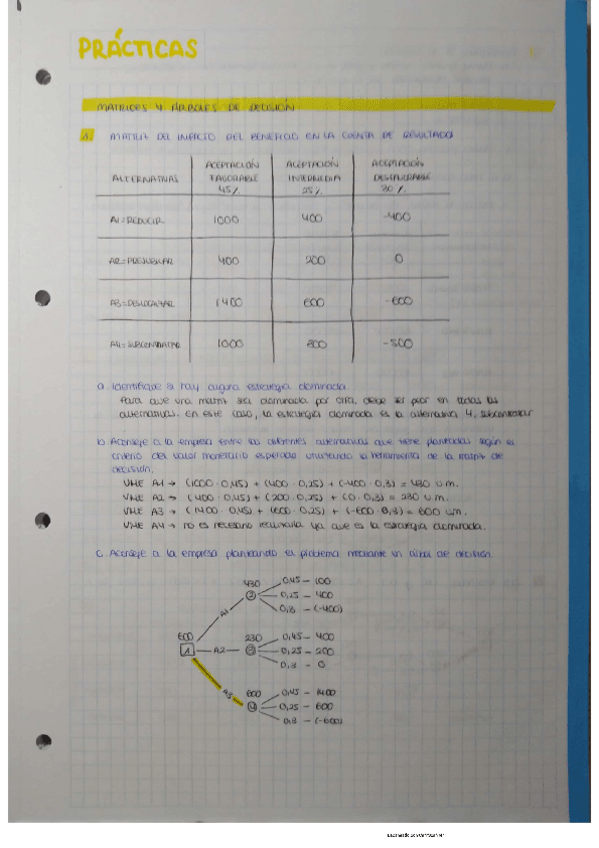 PRÁCTICAS
MATRICES Y ÁRBOLES DE DECISIÓN
1. MATRIZ DEL IMPACTO DEL BENEFICIO EN LA CUENTA DE RESULTADOS
ALTERNATIVAS ACEPTACIÓN FAVORABLE 45% ACEPTACIÓN INTERMEDIA 25% ACEPTACIÓN DESFAVORABLE 30%
A1=REDUCIR 1000 400 -400
A2=PREJUBILAR 400 200 0
A3=DESLOCALIZAR 1400 600 -600
A4=SUBCONTRATAR 1000 300 -500
a. Identifique si hay alguna estrategia dominada.
Para que una matriz sea dominada por otra, debe ser peor en todas las
alternativas. En este caso, la estrategia dominada es la alternativa 4, subcontratar
b. Aconseje a la empresa entre las diferentes alternativas que tiene planteadas según el
criterio del valor monetario esperado utilizando la herramienta de la matriz de
decisión.
VME A1 → (1000 · 0,45) + (400 · 0,25) + (-400 · 0,3) = 430 u.m.
VME A2 → (400 · 0,45) + (200 · 0,25) + (0 · 0,3) = 230 u.m.
VME A3 → (1400 · 0,45) + (600 · 0,25) + (-600 · 0,3) = 600 u.m.
VME A4 → no es necesario realizarla ya que es la estrategia dominada.
c. Aconseje a la empresa planteando el problema mediante un árbol de decisión.
430 0,45 - 100
2 0,25 - 400
0,3 - (-400)
A1
600 230 0,45 - 400
1 A2 3 0,25 - 200
0,3 - 0
A3 600 0,45 - 1400
4 0,25 - 600
0,3 - (-600)